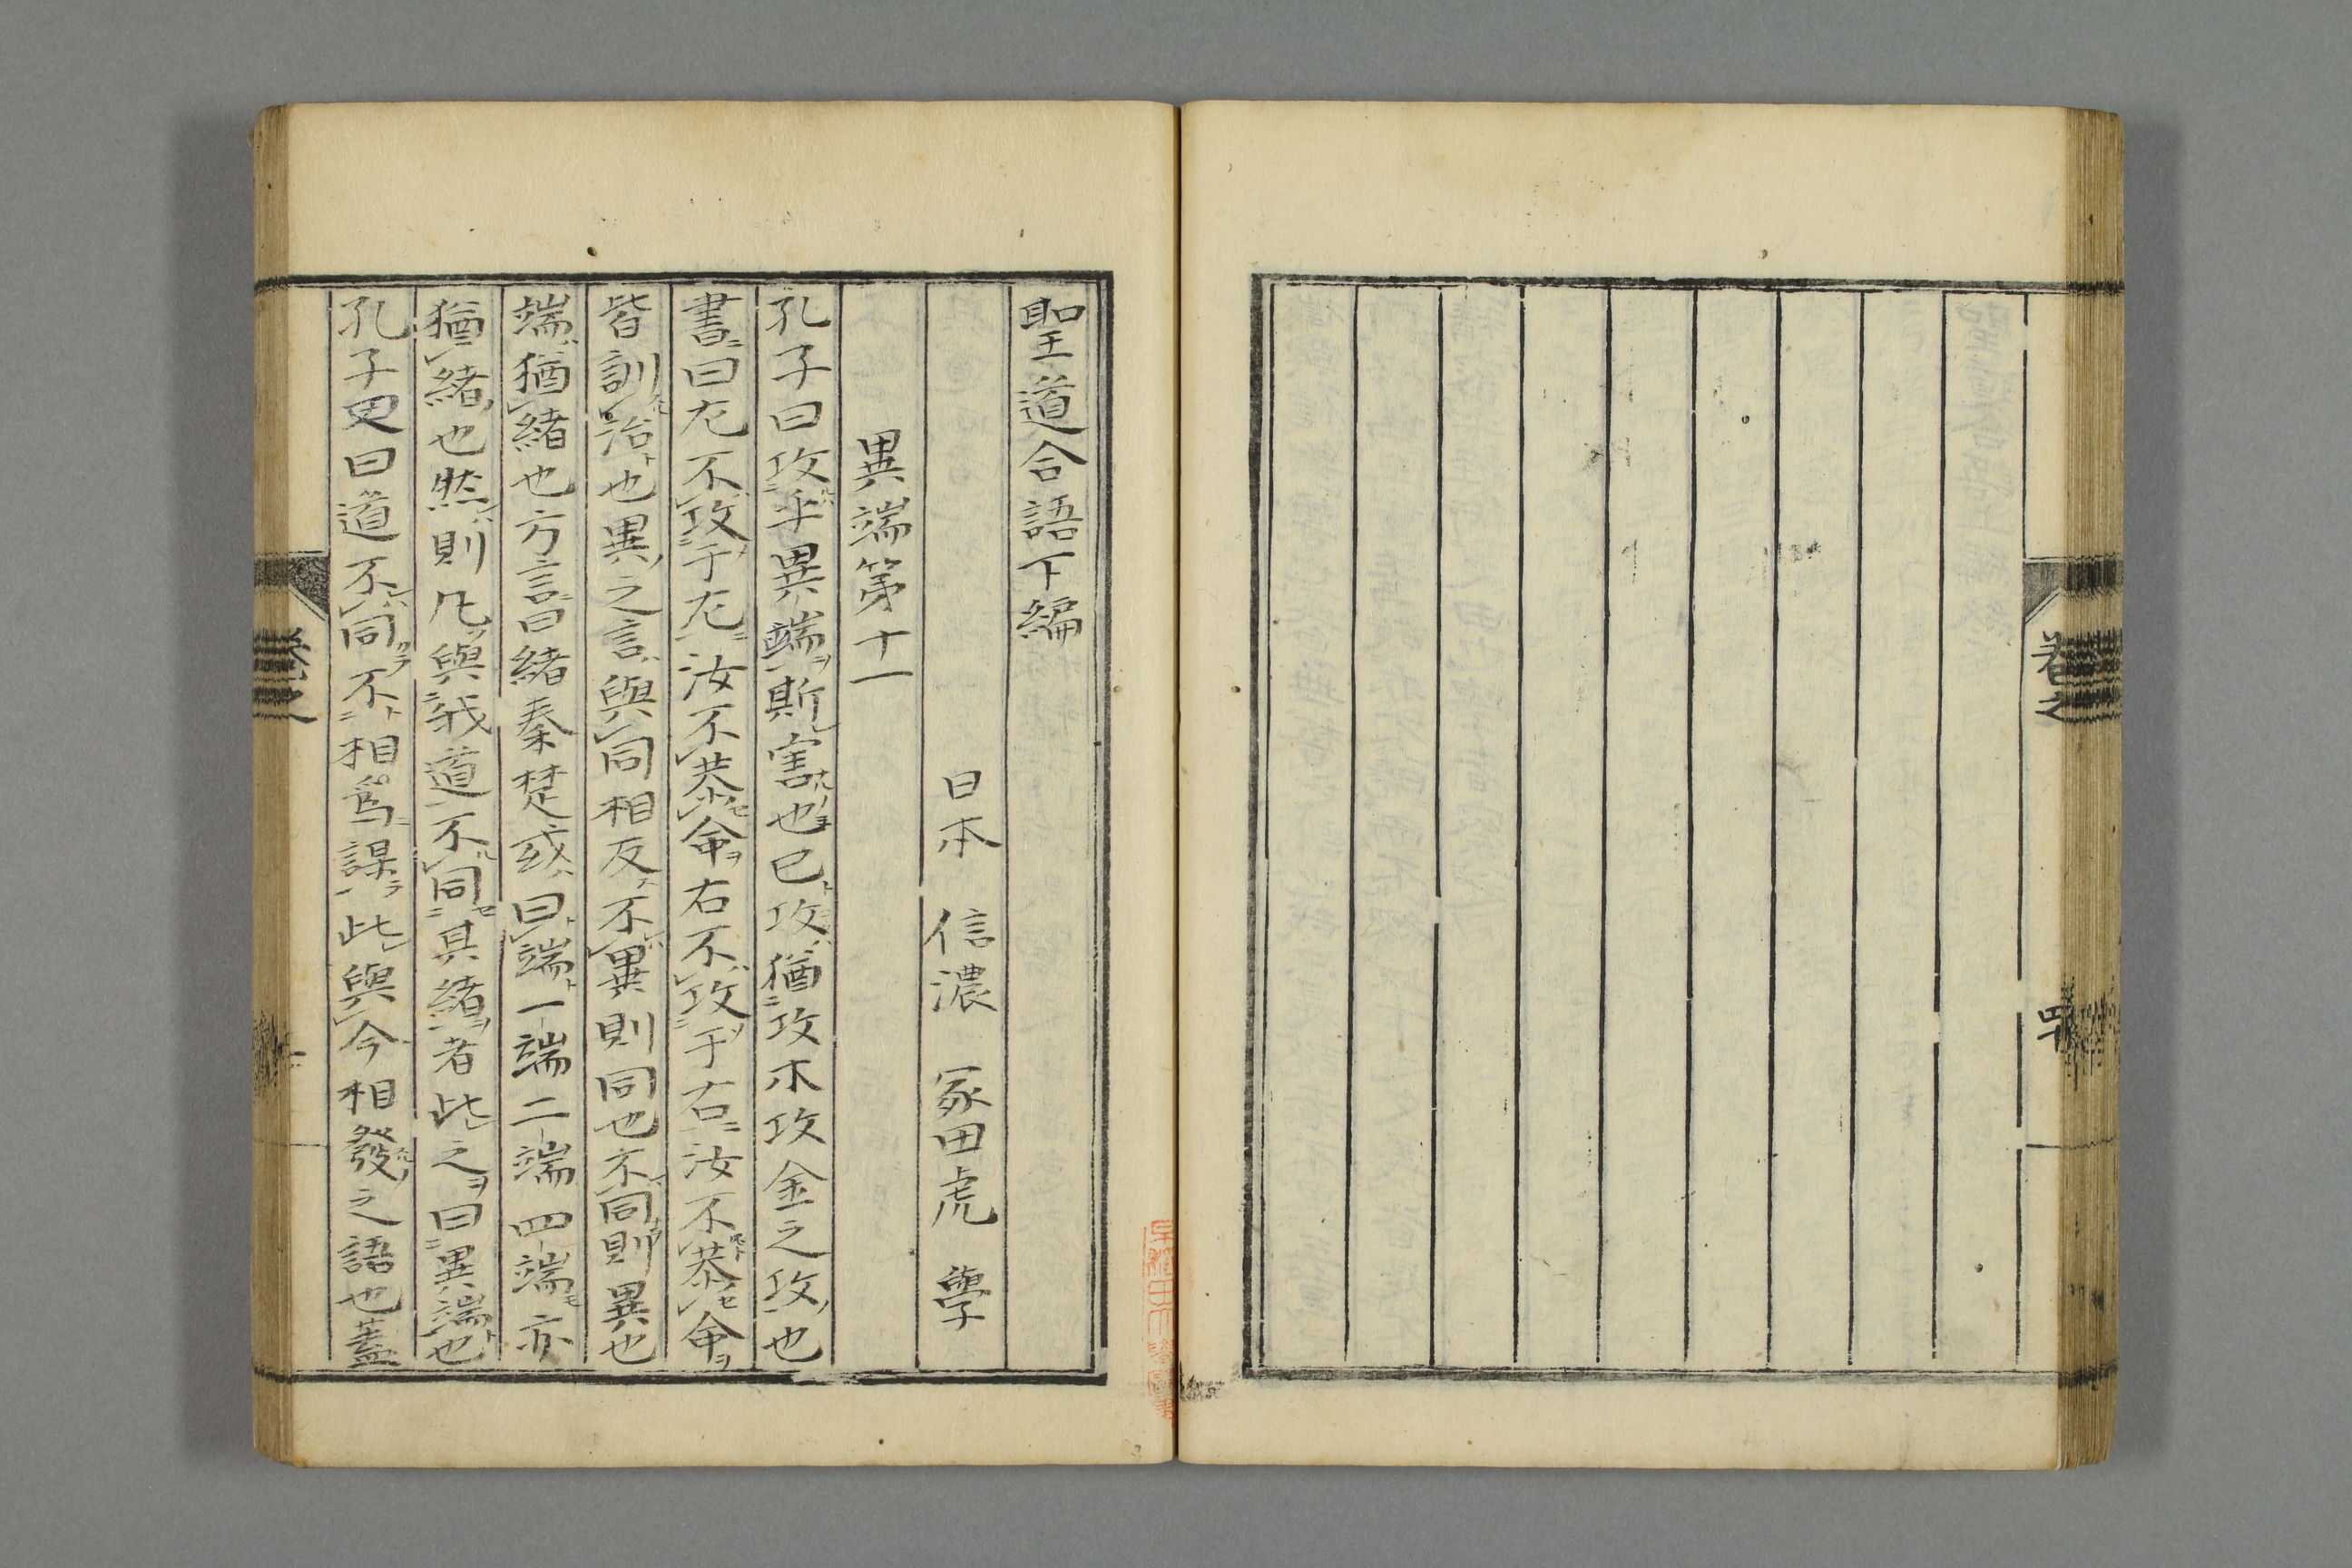 聖道合語下編
日本　信濃　冢田虎　學
異端第十一
孔子曰攻乎異端斯害也已攻猶攻木攻金之攻也
書曰左不攻于左汝不恭命右不攻于右汝不恭命
皆訓治也異之言與同相反不異則同也不同則異也
端猶緒也方言曰緒秦楚或曰端一端二端四端亦
猶緒也然則凡與我道不同其緒者此之曰異端也
孔子又曰道不同不相爲謀此與今相發之語也蓋
卷之